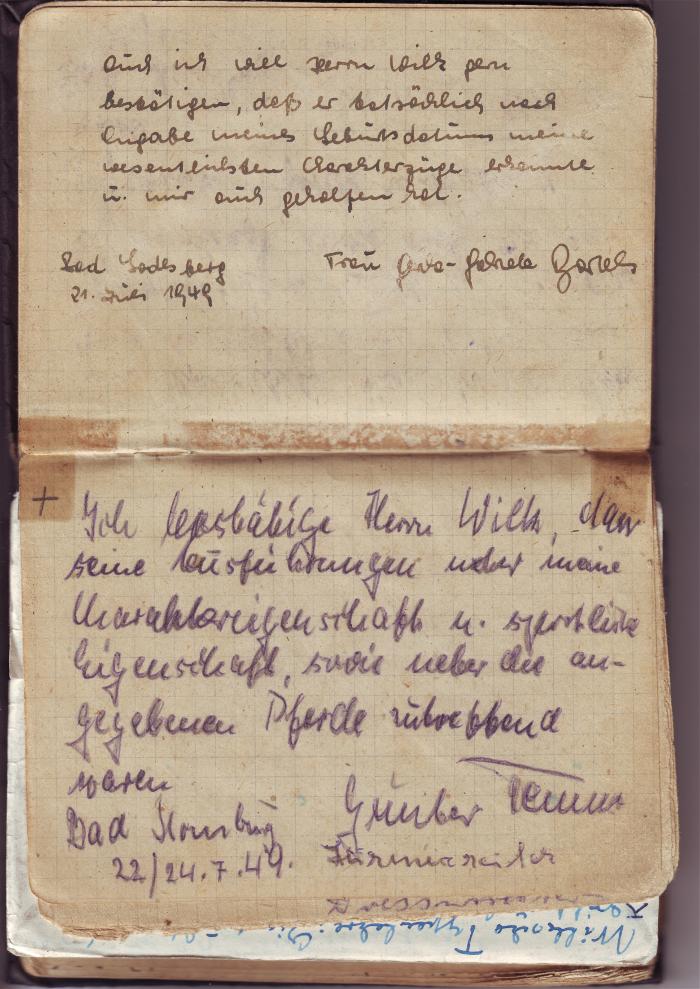 Auch ich will Herrn Wilk gern
bestätigen, daß er tatsächlich nach
Angabe meines Geburtsdatums meine
wesentlichsten Charakterzüge erkannte
u. mir auch geholfen hat.
Bad Godesberg
21. Juli 1949
Frau Gerda-Gabriele Bartels
+
Ich bestätige Herrn Wilk, dass
seine Ausführungen ueber meine
Charaktereigenschaft u. sportliche
Eigenschaft, sowie ueber die an-
gegebenen Pferde zutreffend
waren
Bad Homburg
22/24.7.49.
Günter